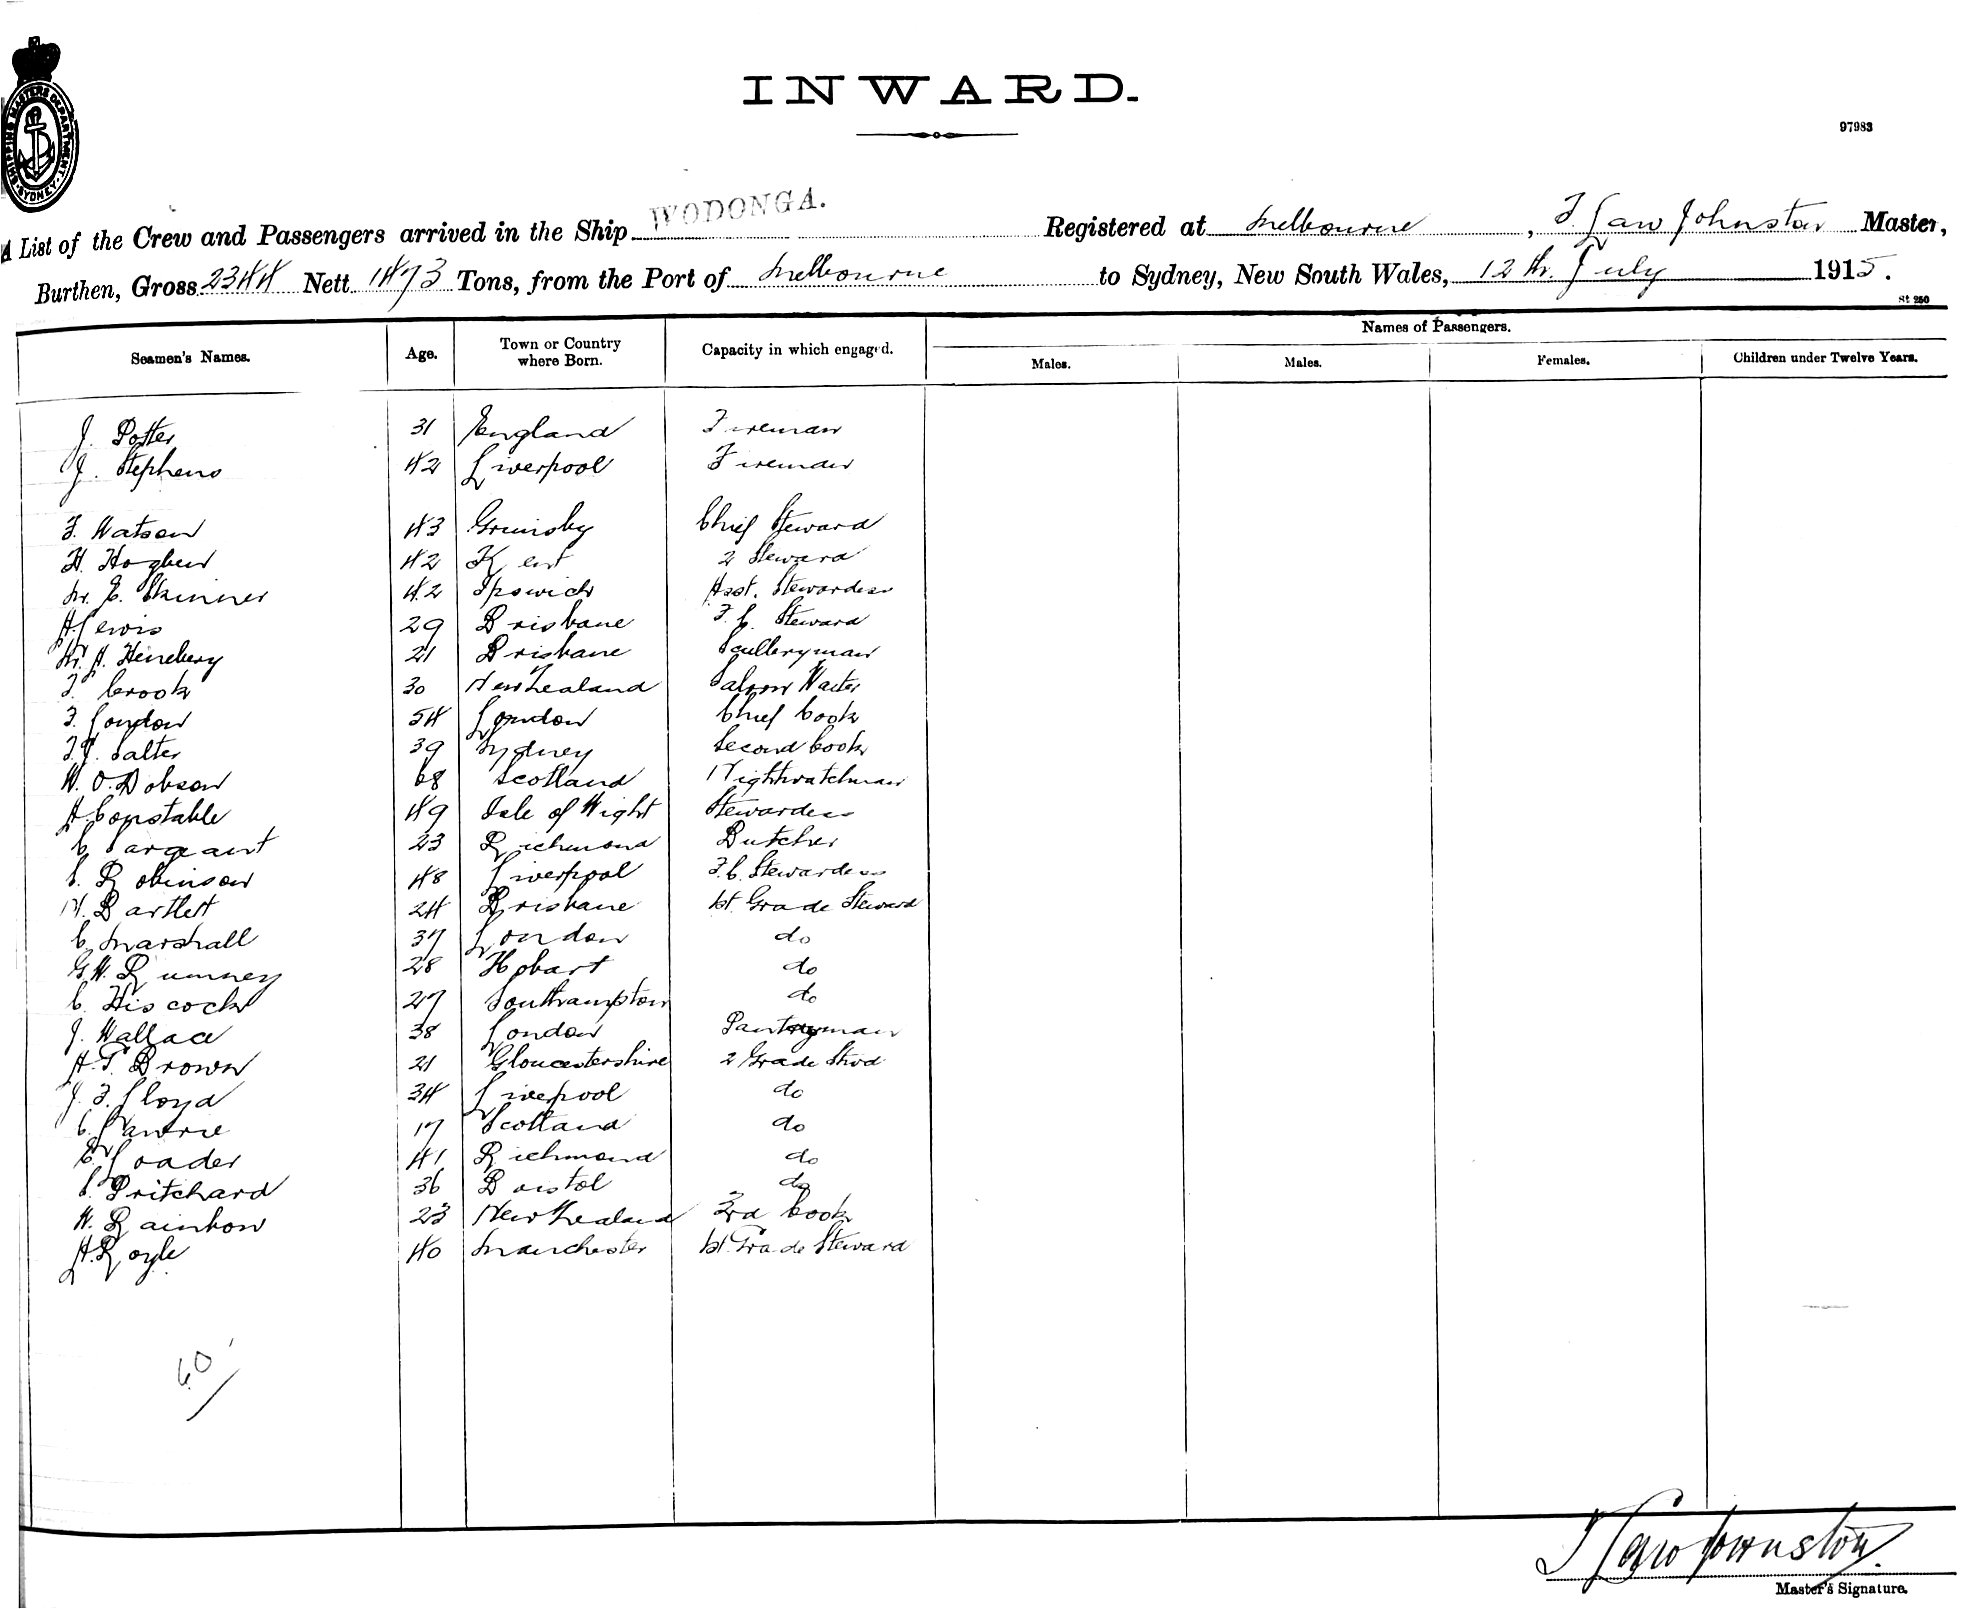 INWARD.
97983
SHIPPING MASTERS DEPARTMENT SYDNEY
A List of the Crew and Passengers arrived in the Ship WODONGA. Registered at Melbourne, F. Law Johnston Master,
Burthen, Gross 2344 Nett 1473 Tons, from the Port of Melbourne to Sydney, New South Wales, 12th. July 1915.
St 250
Names of Passengers.
Seamen's Names. Age. Town or Country where Born. Capacity in which engaged. Males. Males. Females. Children under Twelve Years.
J. Potter 31 England Fireman
J. Stephens 42 Liverpool Fireman
F. Watson 43 Grimsby Chief Steward
H. Hogben 42 Kent 2 Steward
M. E. Skinner 42 Ipswich Asst. Stewardess
A. Lewis 29 Brisbane F. C. Steward
H. Henebery 21 Brisbane Sculleryman
F. Crook 30 New Zealand Saloon Waiter
F. London 54 London Chief Cook
F. J. Salter 39 Sydney Second Cook
W. O. Dobson 68 Scotland Nightwatchman
A. Constable 49 Isle of Wight Stewardess
C. Sargeant 23 Richmond Butcher
C. Robinson 48 Liverpool F. C. Stewardess
N. Bartlett 24 Brisbane 1st Grade Steward
C. Marshall 37 London do
G. W. Rumney 28 Hobart do
C. Hiscock 27 Southampton do
J. Wallace 38 London Pantryman
A. T. Brown 21 Gloucestershire 2 Grade Stwd
J. F. Lloyd 34 Liverpool do
C. Lawrie 17 Scotland do
E. Loader 41 Richmond do
C. Pritchard 36 Bristol do
W. Rainbow 23 New Zealand 3rd Cook
A. Royle 40 Manchester 1st Grade Steward
60
F Law Johnston
Master's Signature.